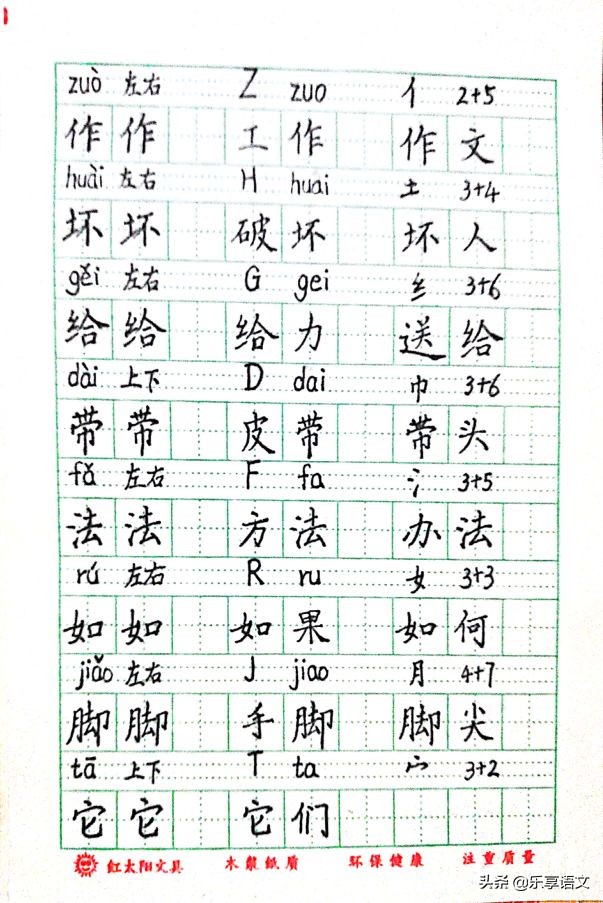 zuò 左右 Z zuo 亻 2+5
作 作 工 作 作 文
huài 左右 H huai 土 3+4
坏 坏 破 坏 坏 人
gěi 左右 G gei 纟 3+6
给 给 给 力 送 给
dài 上下 D dai 巾 3+6
带 带 皮 带 带 头
fǎ 左右 F fa 氵 3+5
法 法 方 法 办 法
rú 左右 R ru 女 3+3
如 如 如 果 如 何
jiǎo 左右 J jiao 月 4+7
脚 脚 手 脚 脚 尖
tā 上下 T ta 宀 3+2
它 它 它 们
红太阳文具 木浆纸质 环保健康 注重质量
头条 @乐享语文